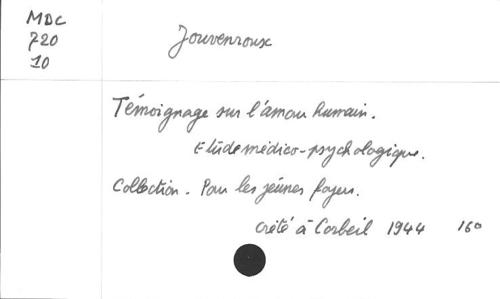 MDC
720
10
Jouvenroux
Témoignage sur l'amour humain.
Etude médico-psychologique.
Collection. Pour les jeunes foyers.
Crété à Corbeil 1944 160